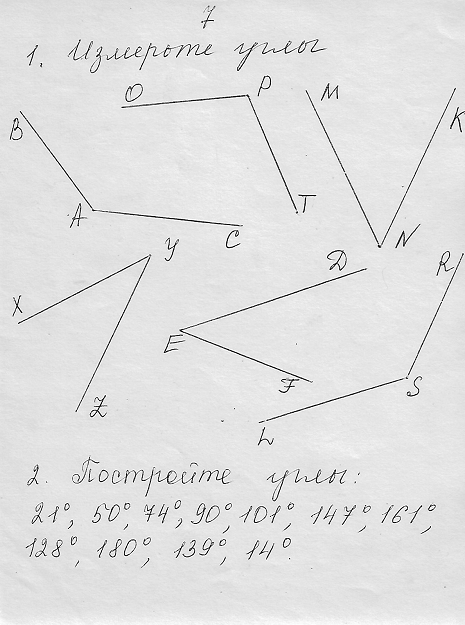 7
1. Измерьте углы
O P M
B K
A T
C N
Y D R
X
E
F S
Z
L
2. Постройте углы:
21°, 50°, 74°, 90°, 101°, 147°, 161°,
128°, 180°, 139°, 14°.